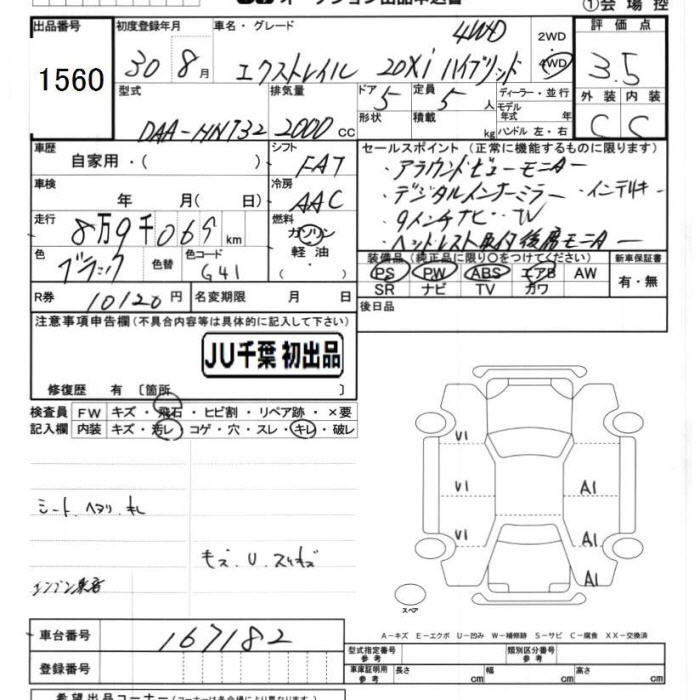 オークション出品申込書 ①会場控
出品番号 1560
初度登録年月 30 8月
車名・グレード エクストレイル 20Xi ハイブリッド 4WD
2WD
4WD
評価点 3.5
外装 内装
C C
型式 DAA-HNT32
排気量 2000 cc
ドア 5
形状
定員 5 人
積載 kg
ディーラー・並行
モデル年式 年
ハンドル 左・右
車歴 自家用・( )
シフト FAT
セールスポイント (正常に機能するものに限ります)
・アラウンドビューモニター
・デジタルインナーミラー ・インテリキー
・9インチナビ・TV
・ヘッドレスト取付後席モニター
車検 年 月( 日)
冷房 AAC
走行 8万9千069 km
燃料 ガソリン
軽油
・
色 ブラック 色替
色コード G41
装備品 (純正品に限り○をつけてください)
PS PW ABS エアB AW
SR ナビ TV カワ
新車保証書
有・無
R券 10120 円
名変期限 月 日
後日品
注意事項申告欄 (不具合内容等は具体的に記入して下さい)
JU千葉 初出品
修復歴 有 〔箇所 〕
検査員 FW キズ・飛石・ヒビ割・リペア跡・×要
記入欄 内装 キズ・汚レ・コゲ・穴・スレ・キレ・破レ
U1
U1 A1
U1 A1
A1
シート、ヘタリ、キレ
キズ、U、スリキズ
スペア
A-キズ E-エクボ U-凹み W-補修跡 S-サビ C-腐食 XX-交換済
車台番号 167182
登録番号
型式指定番号 参考
類別区分番号 参考
車庫証明用 参考 長さ cm 幅 cm 高さ cm
希望出品コーナー